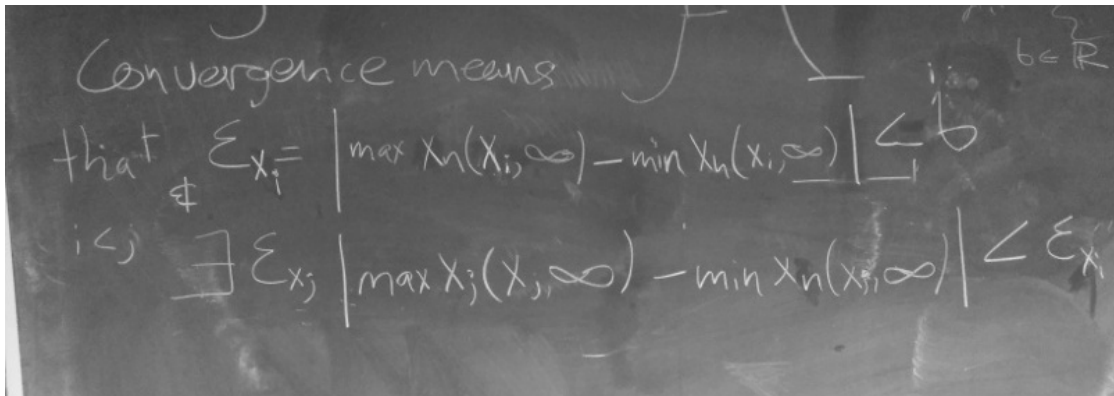 Convergence means
b ∈ ℝ
that ℰ_{x_i} = | max x_n(x_i, ∞) − min x_n(x_i, ∞) | < b
¢
i<j ∃ ℰ_{x_j} | max x_j(x_j, ∞) − min x_n(x_j, ∞) | < ℰ_{x_i}